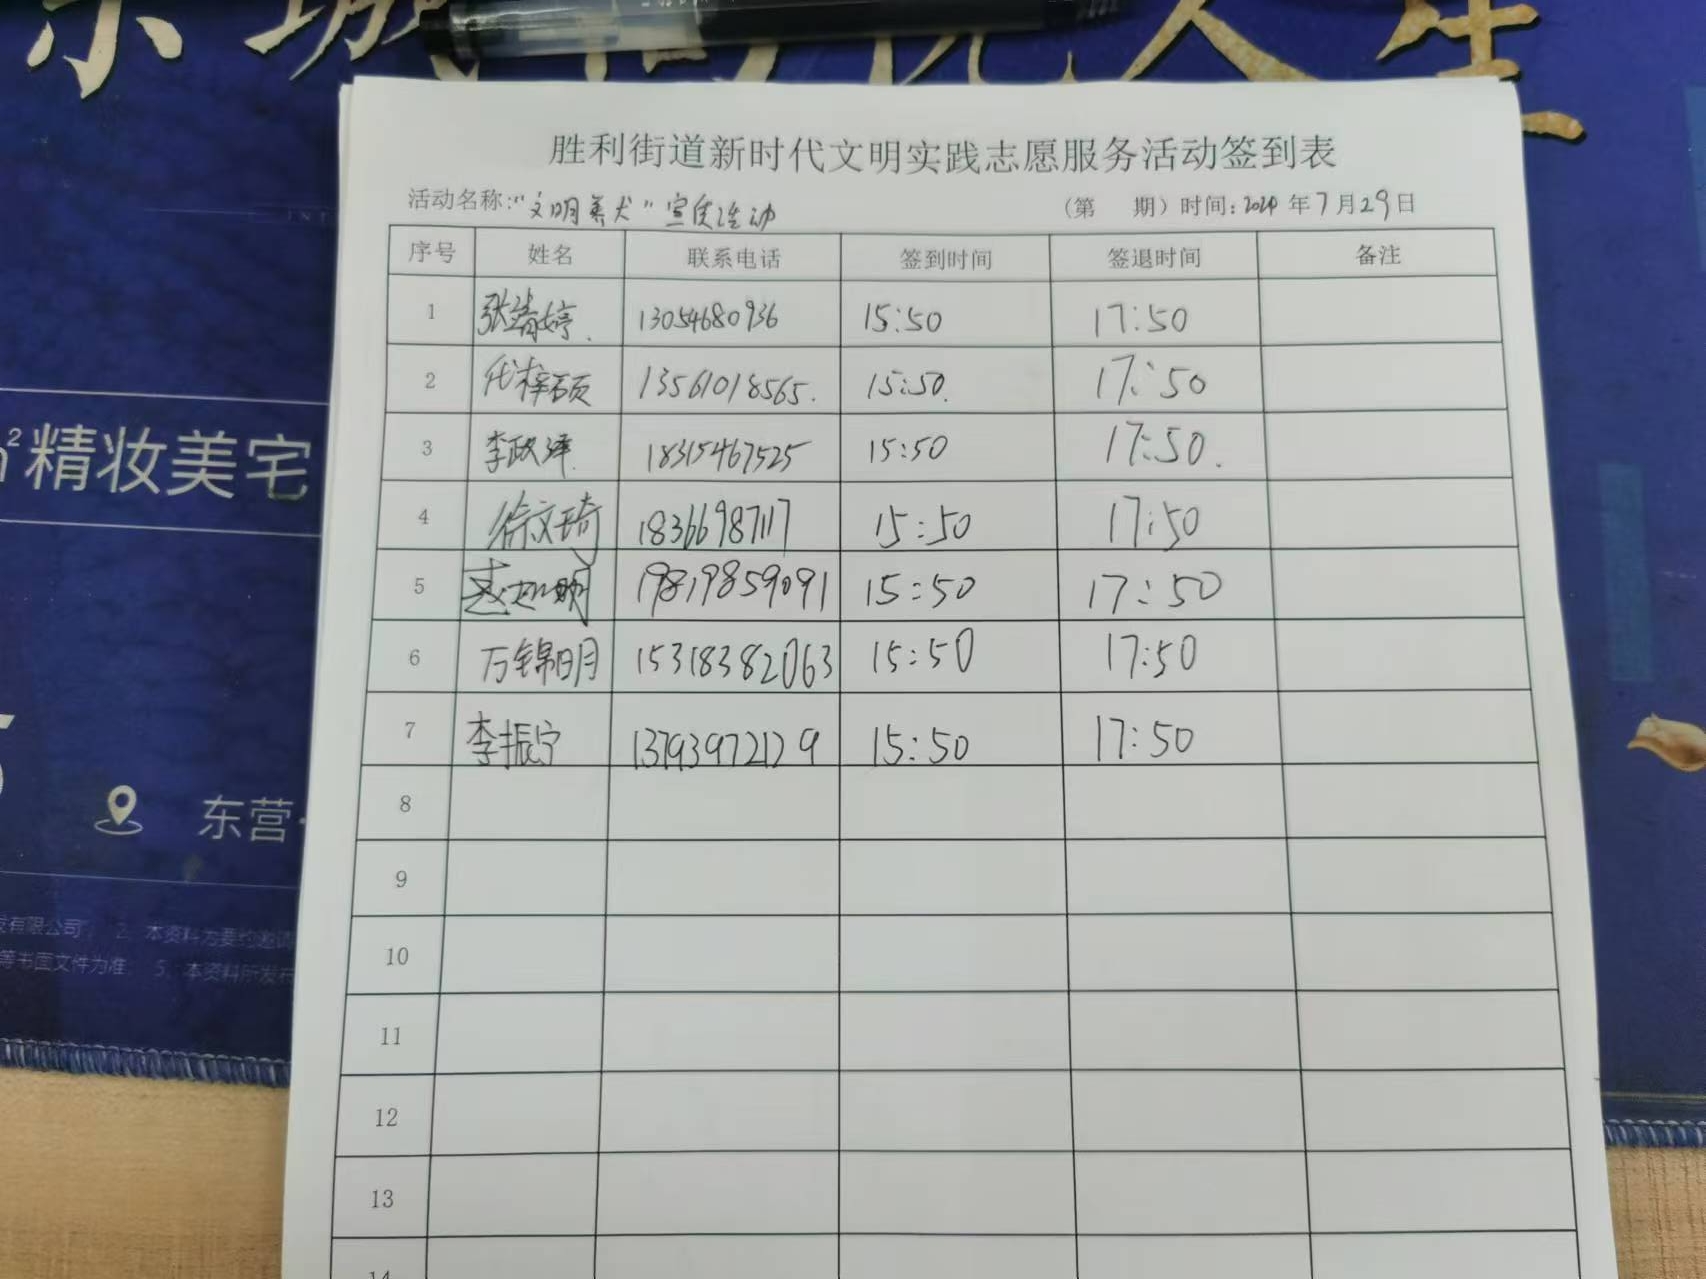 精妆美宅
东营·
胜利街道新时代文明实践志愿服务活动签到表
活动名称:"文明养犬"宣传活动 (第 期) 时间:2024年7月29日
序号 姓名 联系电话 签到时间 签退时间 备注
1 张靖婷 13054680936 15:50 17:50
2 代梓硕 13561018565 15:50 17:50
3 李政泽 18315467525 15:50 17:50
4 徐文琦 18366987117 15:50 17:50
5 19819859091 15:50 17:50
6 万锦明 15318382063 15:50 17:50
7 李振宁 13793972129 15:50 17:50
8
9
10
11
12
13
14
发有限公司 2、本资料为要约邀请
等书面文件为准。5、本资料所发布